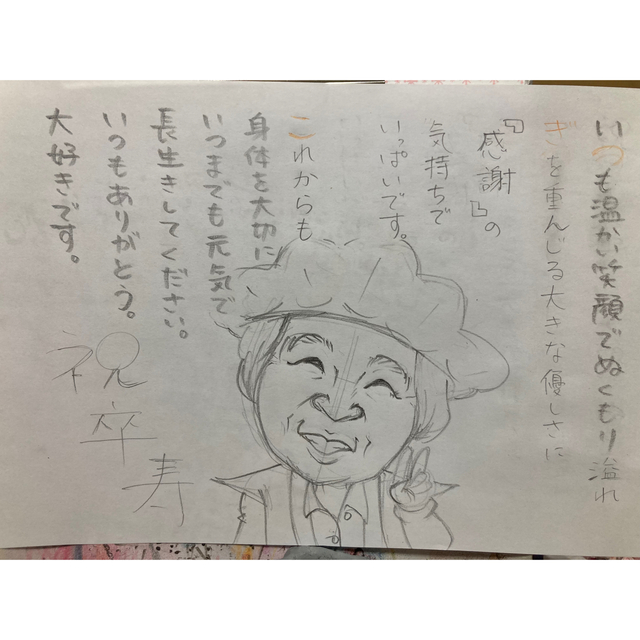 いつも温かい笑顔でぬくもり溢れ
ぎを重んじる大きな優しさに
『感謝』の
気持ちで
いっぱいです。
これからも
身体を大切に
いつまでも元気で
長生きしてください。
いつもありがとう。
大好きです。
祝卒寿